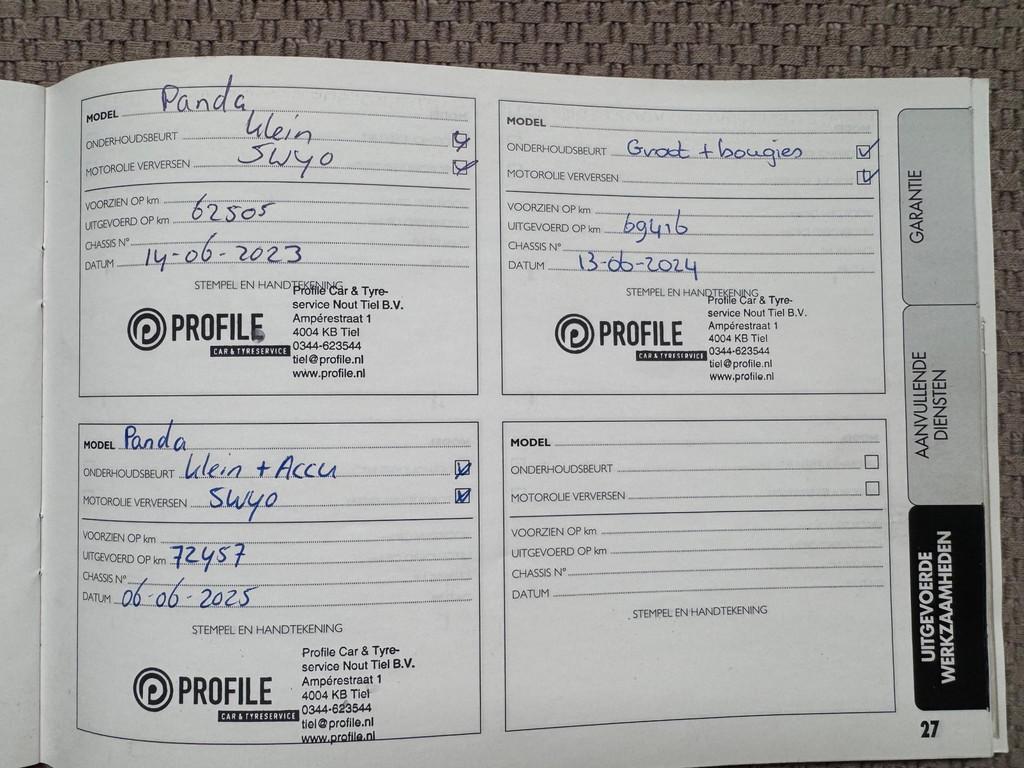 MODEL Panda
ONDERHOUDSBEURT Klein
MOTOROLIE VERVERSEN 5W40
VOORZIEN OP km
UITGEVOERD OP km 62505
CHASSIS N°
DATUM 14-06-2023
STEMPEL EN HANDTEKENING
PROFILE
CAR & TYRESERVICE
Profile Car & Tyre-
service Nout Tiel B.V.
Ampérestraat 1
4004 KB Tiel
0344-623544
tiel@profile.nl
www.profile.nl
MODEL
ONDERHOUDSBEURT Groot + bougies
MOTOROLIE VERVERSEN
VOORZIEN OP km
UITGEVOERD OP km 69416
CHASSIS N°
DATUM 13-06-2024
STEMPEL EN HANDTEKENING
PROFILE
CAR & TYRESERVICE
Profile Car & Tyre-
service Nout Tiel B.V.
Ampérestraat 1
4004 KB Tiel
0344-623544
tiel@profile.nl
www.profile.nl
MODEL Panda
ONDERHOUDSBEURT Klein + Accu
MOTOROLIE VERVERSEN 5W40
VOORZIEN OP km
UITGEVOERD OP km 72457
CHASSIS N°
DATUM 06-06-2025
STEMPEL EN HANDTEKENING
PROFILE
CAR & TYRESERVICE
Profile Car & Tyre-
service Nout Tiel B.V.
Ampérestraat 1
4004 KB Tiel
0344-623544
tiel@profile.nl
www.profile.nl
MODEL
ONDERHOUDSBEURT
MOTOROLIE VERVERSEN
VOORZIEN OP km
UITGEVOERD OP km
CHASSIS N°
DATUM
STEMPEL EN HANDTEKENING
GARANTIE
AANVULLENDE
DIENSTEN
UITGEVOERDE
WERKZAAMHEDEN
27